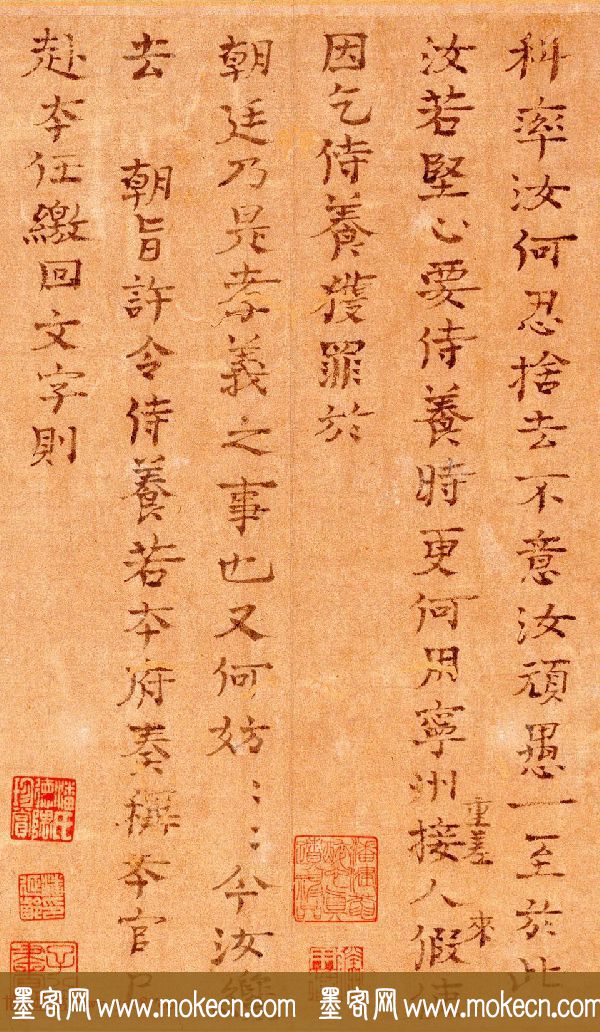 科率汝何忍捨去不意汝頑愚一至於此
汝若堅心要侍養時更何用寧州接人假使
重差 來
因乞侍養獲罪於
朝廷乃是孝義之事也又何妨〻〻今汝
去 朝旨許令侍養若本府奏稱本官已
赴本任繳回文字則
墨客网www.mokecn.com 墨客网www.mokecn.com